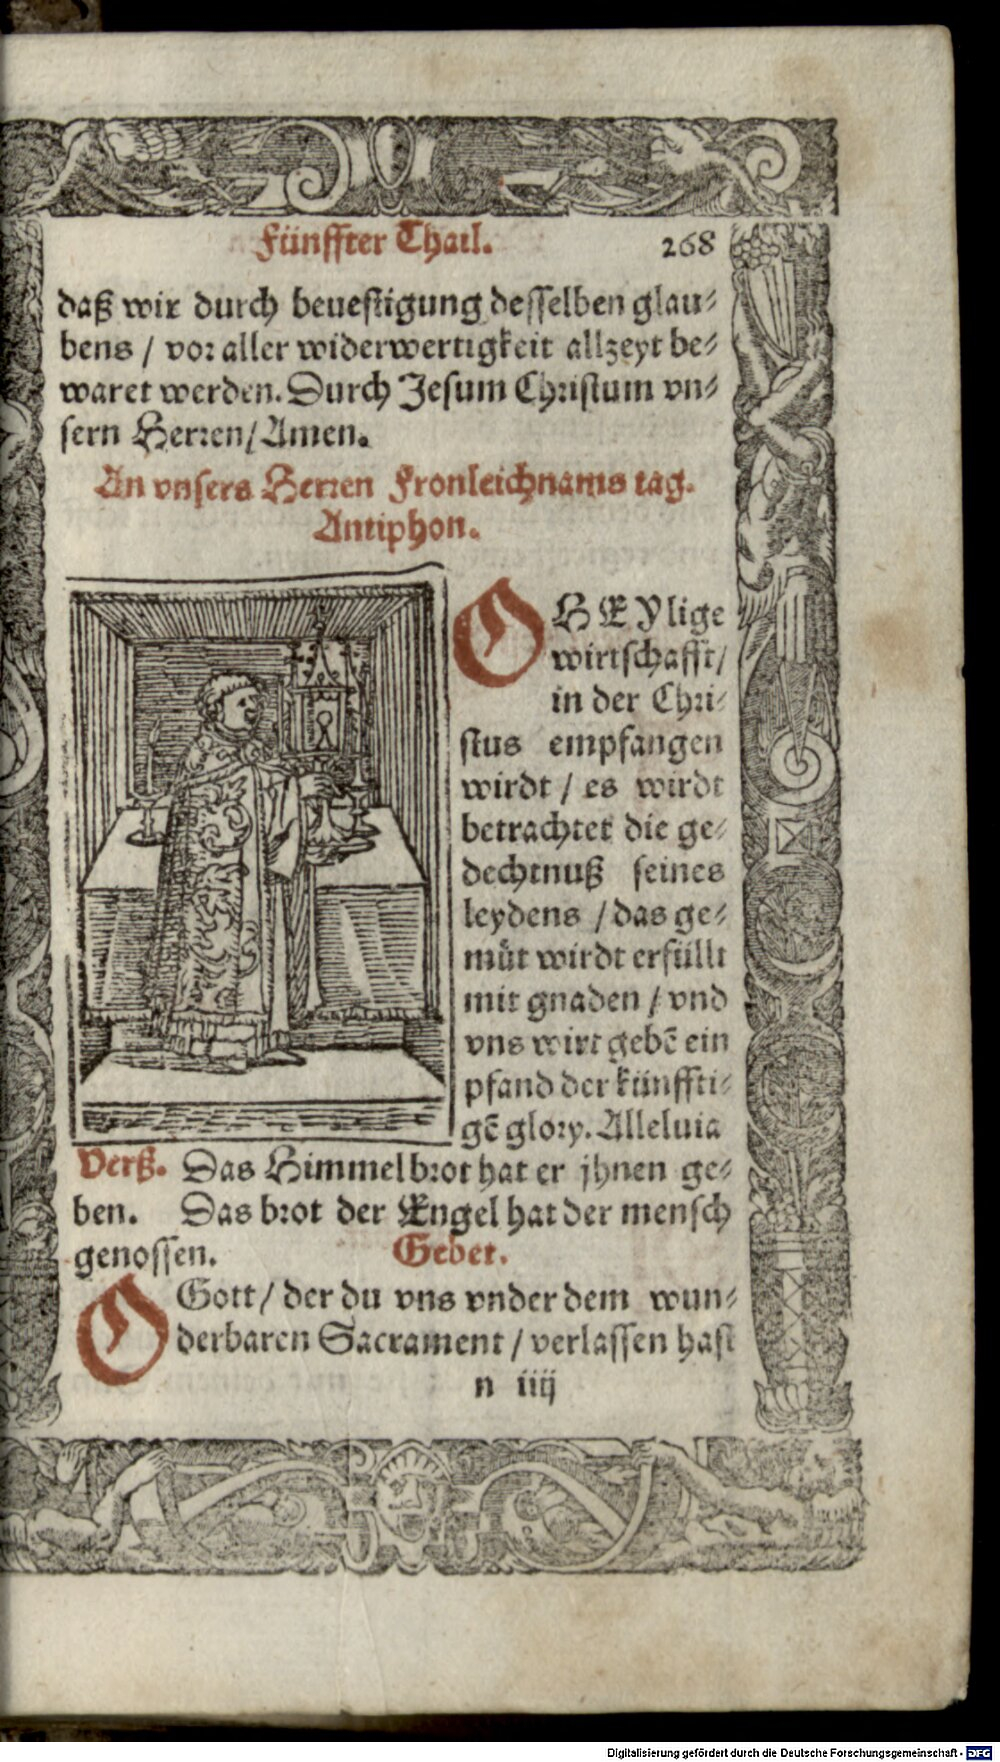 Fünffter Thail. 268
daß wir durch beuestigung desselben glau⸗
bens / vor aller widerwertigkeit allzeyt be⸗
waret werden. Durch Jesum Christum vn⸗
sern Herren / Amen.
An vnsers Herren Fronleichnams tag.
Antiphon.
O HEYlige
wirtschafft /
in der Chri⸗
stus empfangen
wirdt / es wirdt
betrachtet die ge⸗
dechtnuß seines
leydens / das ge⸗
můt wirdt erfüllt
mit gnaden / vnd
vns wirt gebē ein
pfand der künffti⸗
gē glory. Alleluia
Verß. Das Himmelbrot hat er jhnen ge⸗
ben. Das brot der Engel hat der mensch
genossen. Gebet.
O Gott / der du vns vnder dem wun⸗
derbaren Sacrament / verlassen hast
n iiij
Digitalisierung gefördert durch die Deutsche Forschungsgemeinschaft - DFG